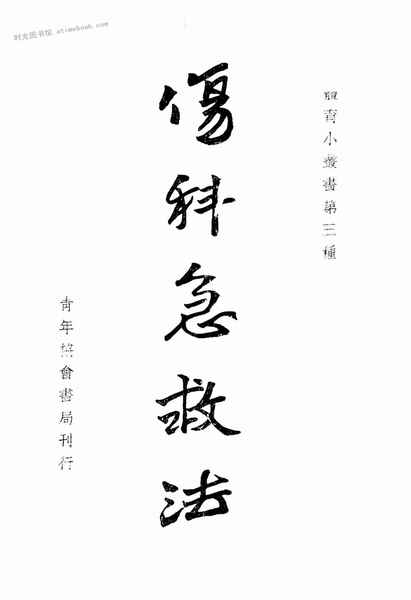 时光图书馆 atimebook.com
體育小叢書第三種
傷科急救法
青年協會書局刊行